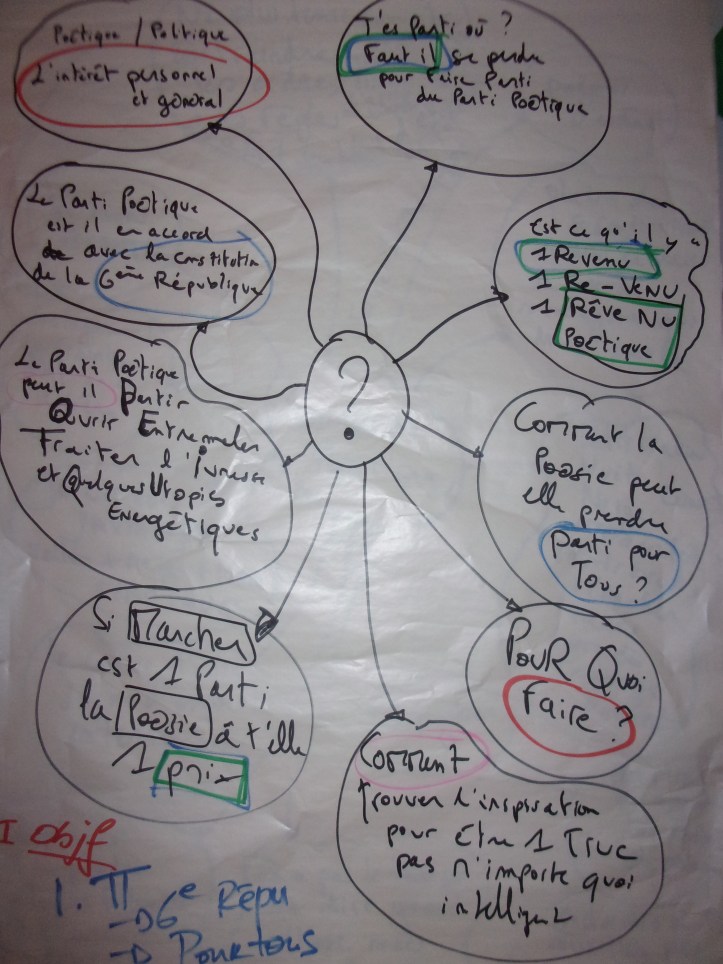 Poétique / Politique
L'intérêt personnel
et général
T'es Parti où ?
Faut il se perdre
pour faire Parti
du Parti Poétique
Le Parti Poétique
est il en accord
avec la constitution
de la 6ème République
Est ce qu'il y a
1 Revenu
1 Re-Venu
1 Rêve Nu
Poétique
?
Le Parti Poétique
peut il Partir
Ouvrir Entremeler
Traiter l'ivresse
et Quelques Utopies
Energétiques
Comment la
Poésie peut
elle prendre
parti pour
Tous ?
Si Marcher
est 1 Parti
la Poésie à t'elle
1 prix
Pour Quoi
Faire ?
Comment
Trouver l'inspiration
pour être 1 Truc
pas n'importe quoi
intelligent
I Objf
1. Π
→ 6e Répu
→ Pour tous